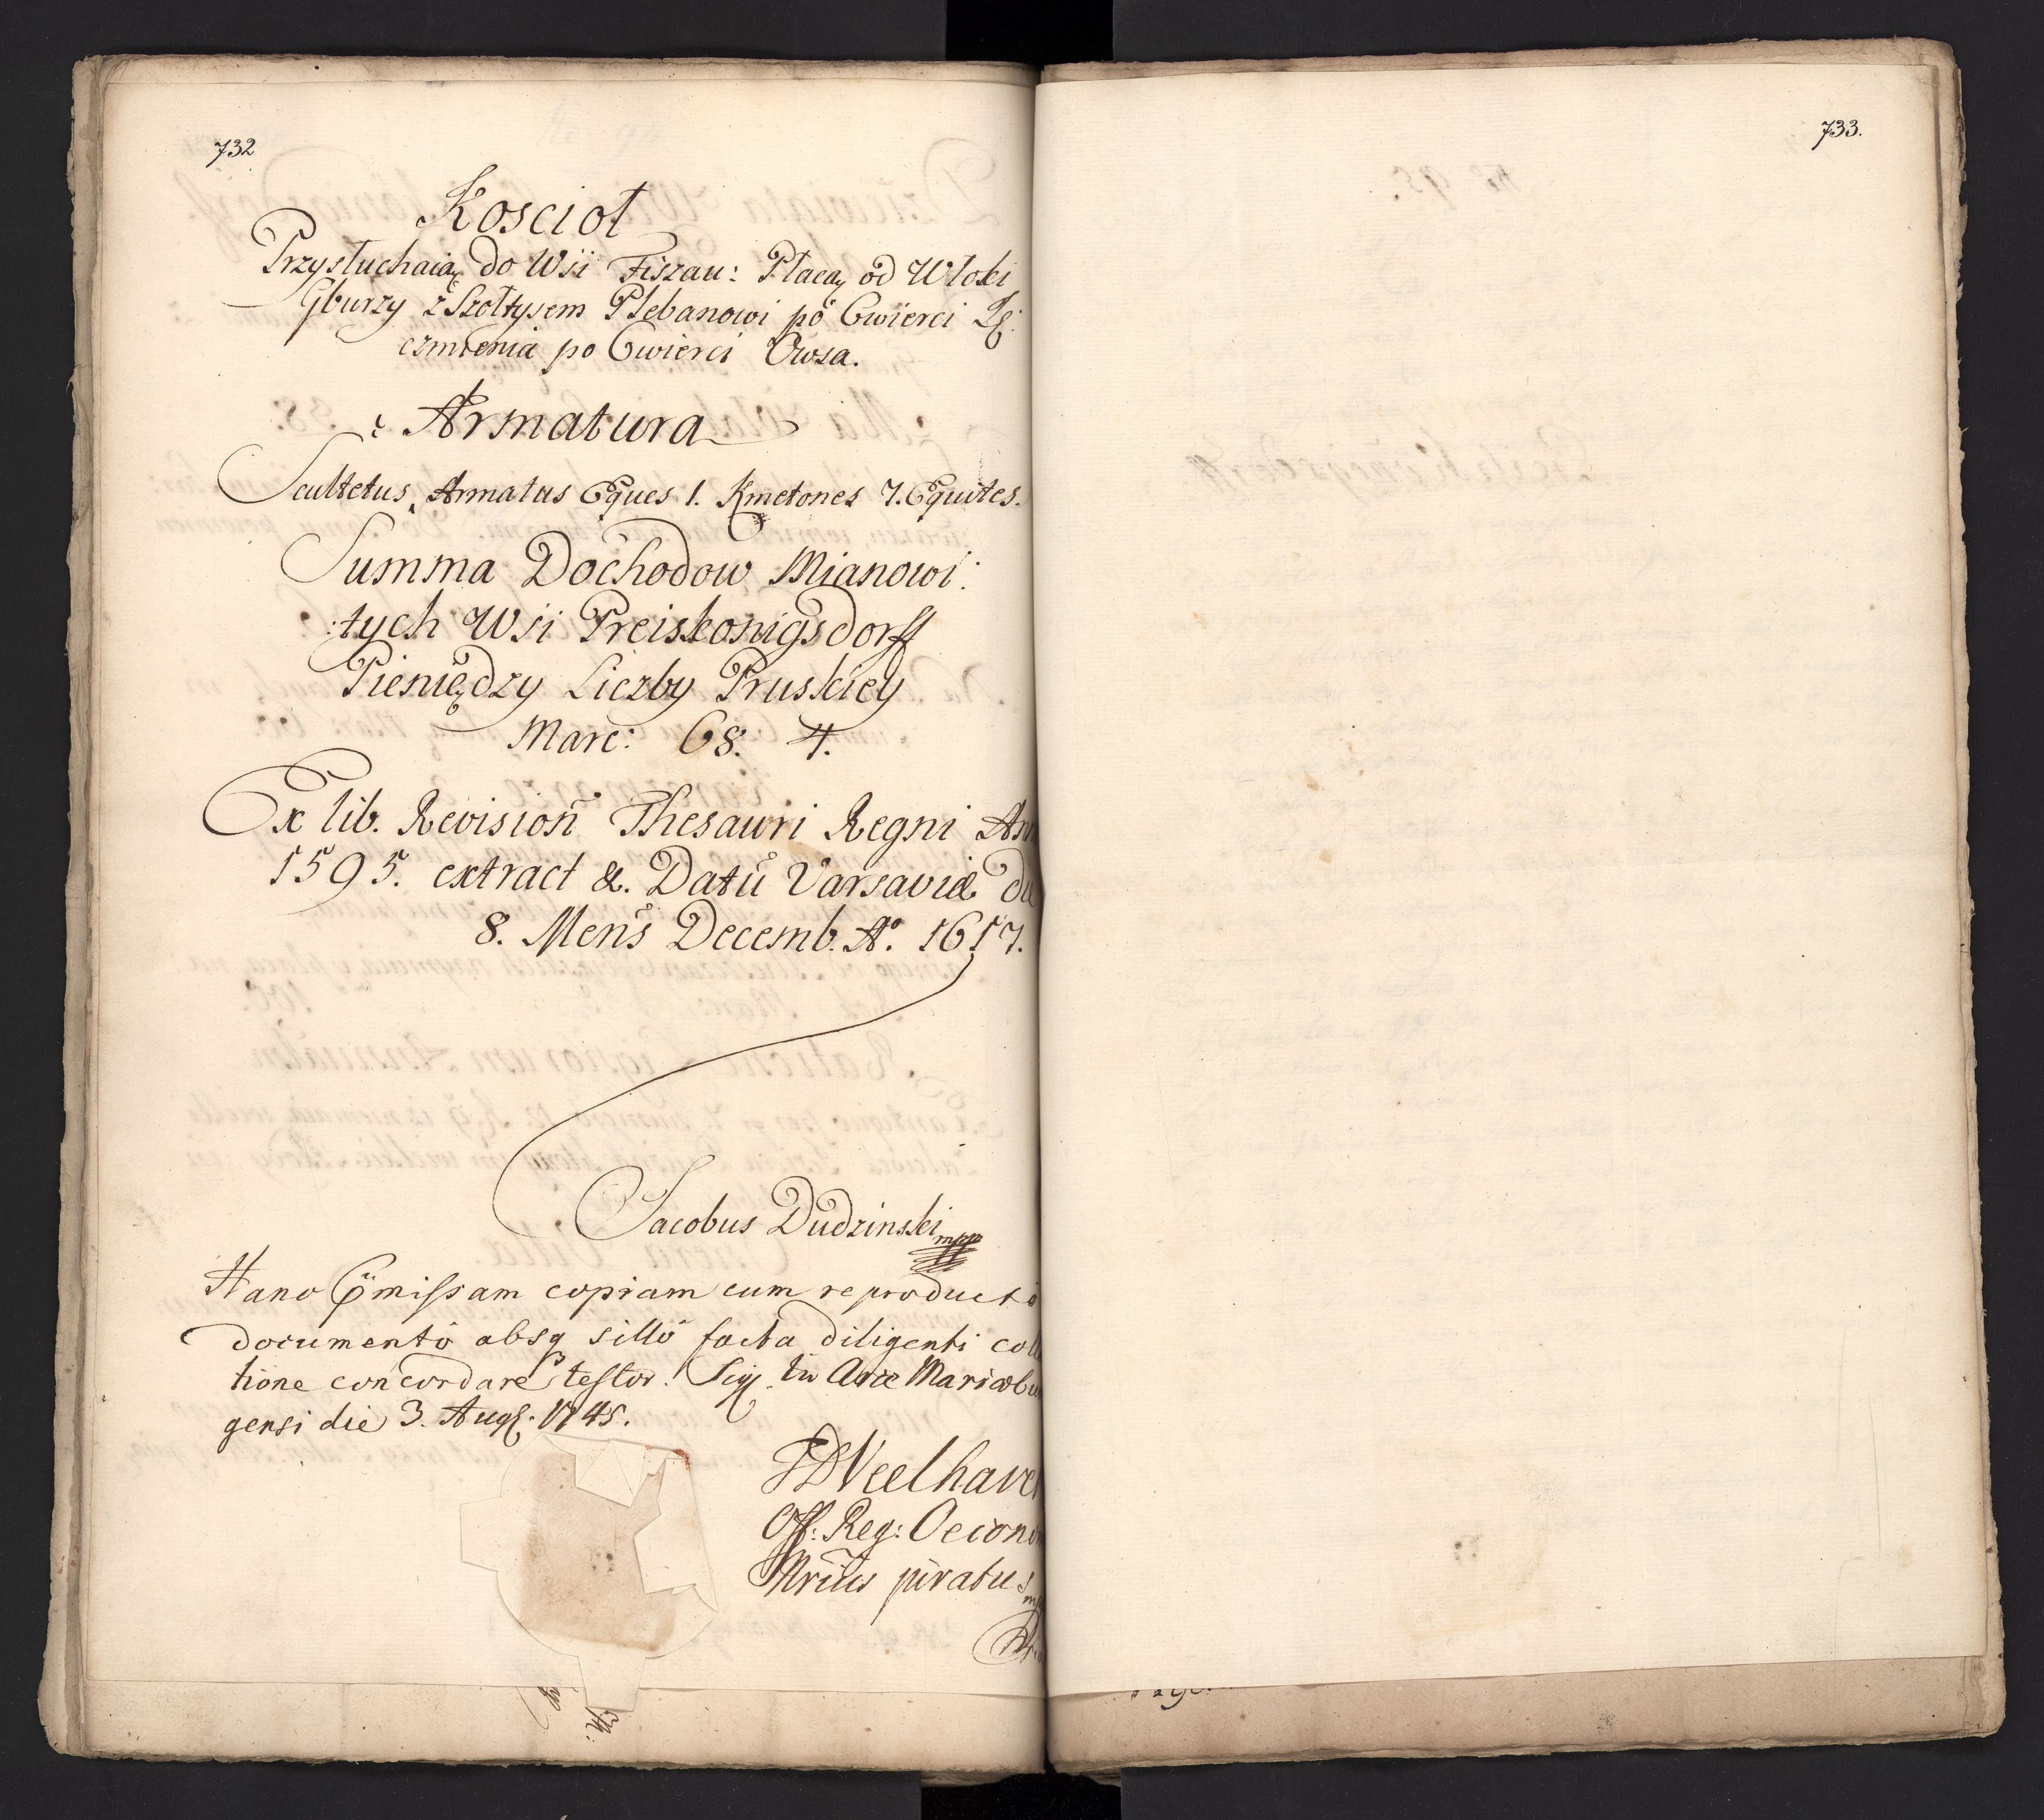 732
Koscioł
Przysłuchaią do Wsi Fiszau: Płacą od Włoki
Gburzy z Szołtysem Plebanowi po Cwierci
czmienia po Cwierci Owsa.
Armatura
Scultetus Armatus Eques 1. Kmetones 7. Equites.
Summa Dochodow Mianowi:
:tych Wsi Preiskonigsdorff
Pieniędzy Liczby Pruskiey
Marc: 68. 4.
Ex lib. Revisioñ Thesauri Regni
1595. extract &. Datū Varsaviæ
8. Meñs Decemb. A°. 1617.
Jacobus Dudzinski mpp
copiam cum
documentô absq facta diligenti
tione concordare testor. in Arce
gensi die 3. Aug. 1745.
Off: Reg:
juratus
733.